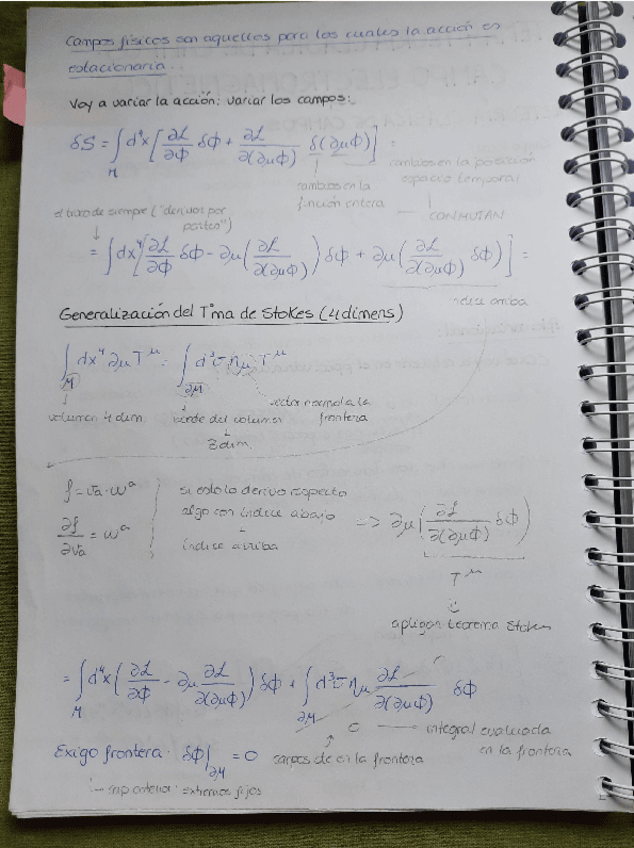 Campos físicos son aquellos para los cuales la acción es
estacionaria.
Voy a variar la acción: variar los campos:
δS = ∫_M d⁴x [ ∂ℒ/∂ϕ δϕ + ∂ℒ/∂(∂μϕ) δ(∂μϕ) ] =
cambios en la función entera
cambios en la posición espacio temporal
— CONMUTAN
el truco de siempre ("derivar por partes")
= ∫ dx⁴ [ ∂ℒ/∂ϕ δϕ - ∂μ( ∂ℒ/∂(∂μϕ) ) δϕ + ∂μ( ∂ℒ/∂(∂μϕ) δϕ ) ] =
índice arriba
Generalización del Tma de Stokes (4 dimens)
∫_M dx⁴ ∂μ T^μ = ∫_∂M d³σ ημ T^μ
volumen 4 dim.
borde del volumen
3 dim.
vector normal a la frontera
f = va · w^a
∂f/∂va = w^a
si esto lo derivo respecto
algo con índice abajo
índice arriba
=> ∂μ( ∂ℒ/∂(∂μϕ) δϕ )
T^μ
aplican teorema Stokes
= ∫_M d⁴x ( ∂ℒ/∂ϕ - ∂μ ∂ℒ/∂(∂μϕ) ) δϕ + ∫_∂M d³σ ημ ∂ℒ/∂(∂μϕ) δϕ
0 → integral evaluada
en la frontera
Exijo frontera: δϕ|_∂M = 0
campos de en la frontera
extremos fijos